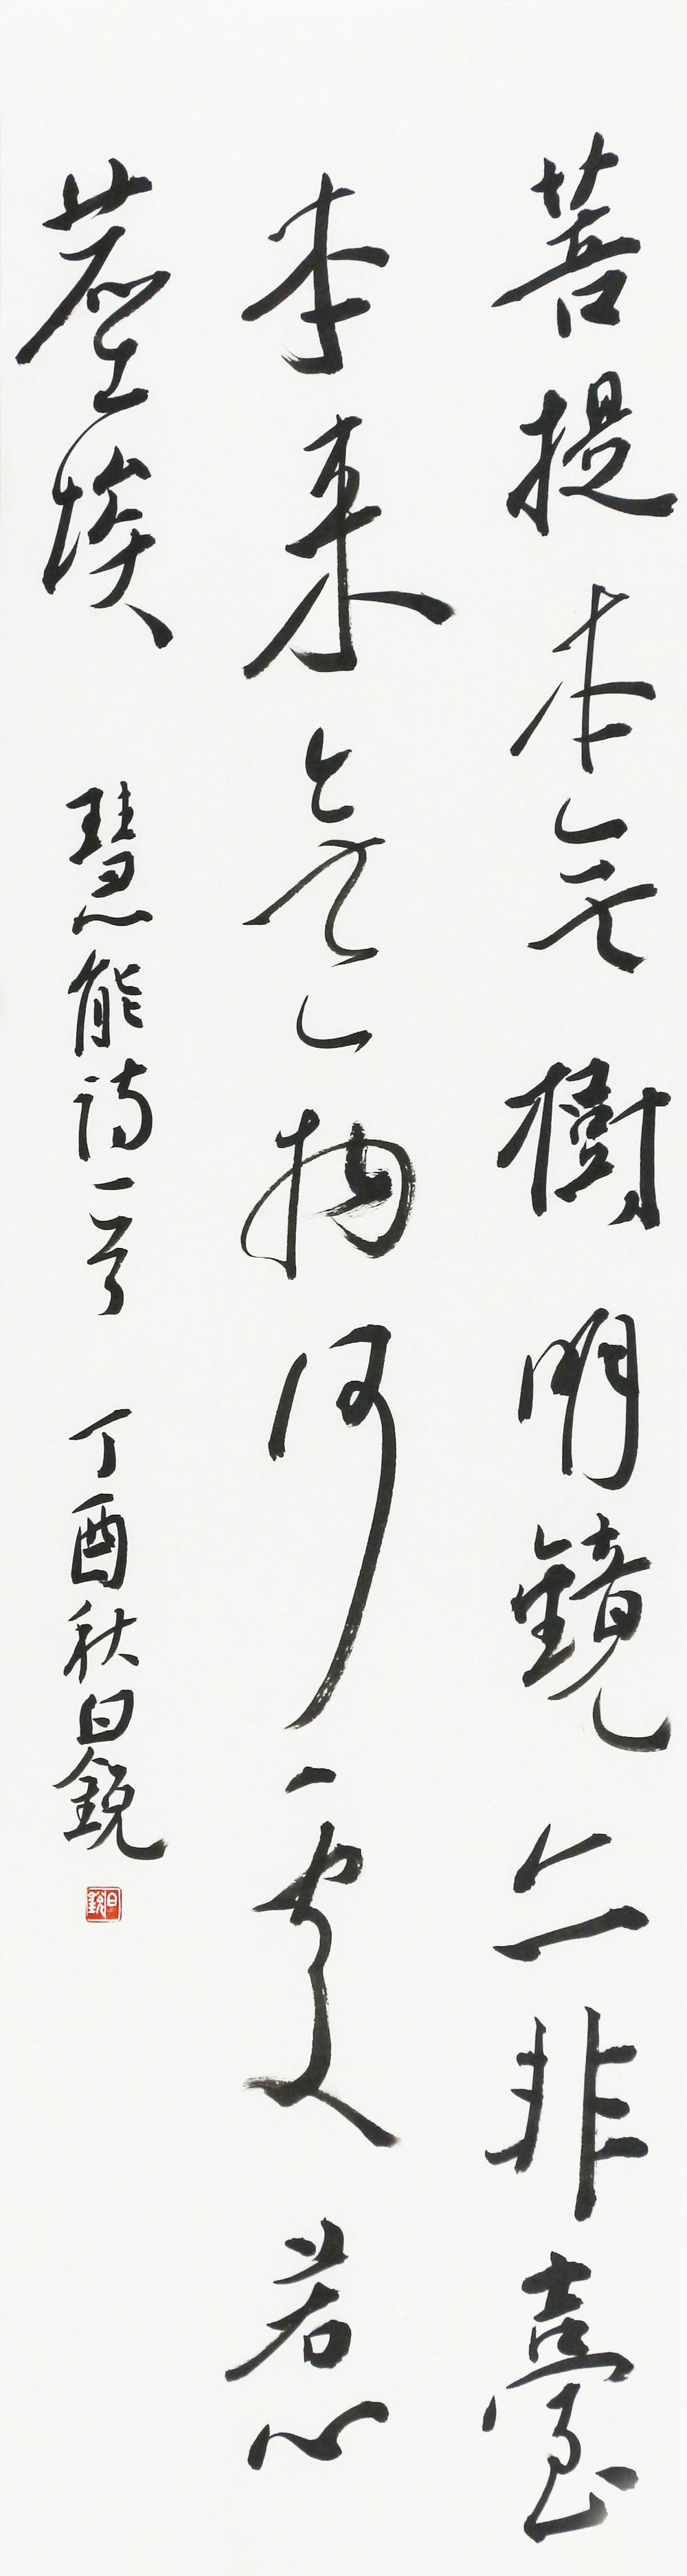 菩提本無樹明鏡亦非臺
本来無一物何處惹
塵埃 慧能詩一首 丁酉秋日銳
日銳